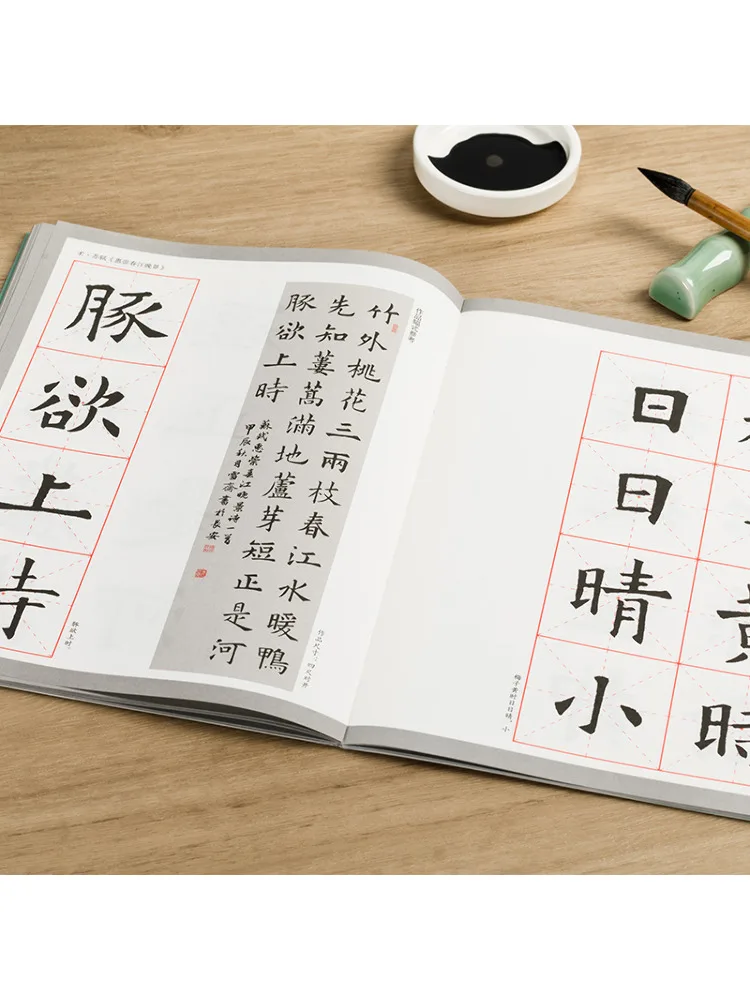 宋·苏轼《惠崇春江晚景》
豚欲上
豚欲上时。
作品幅式参考
竹外桃花三兩枝春江水暖鴨
先知蔞蒿滿地蘆芽短正是河
豚欲上時
蘇軾惠崇春江晚景诗一首
甲辰秋月雪齋書於長安
作品尺寸：四尺对开
黃時
日日晴小
梅子黄时日日晴，小